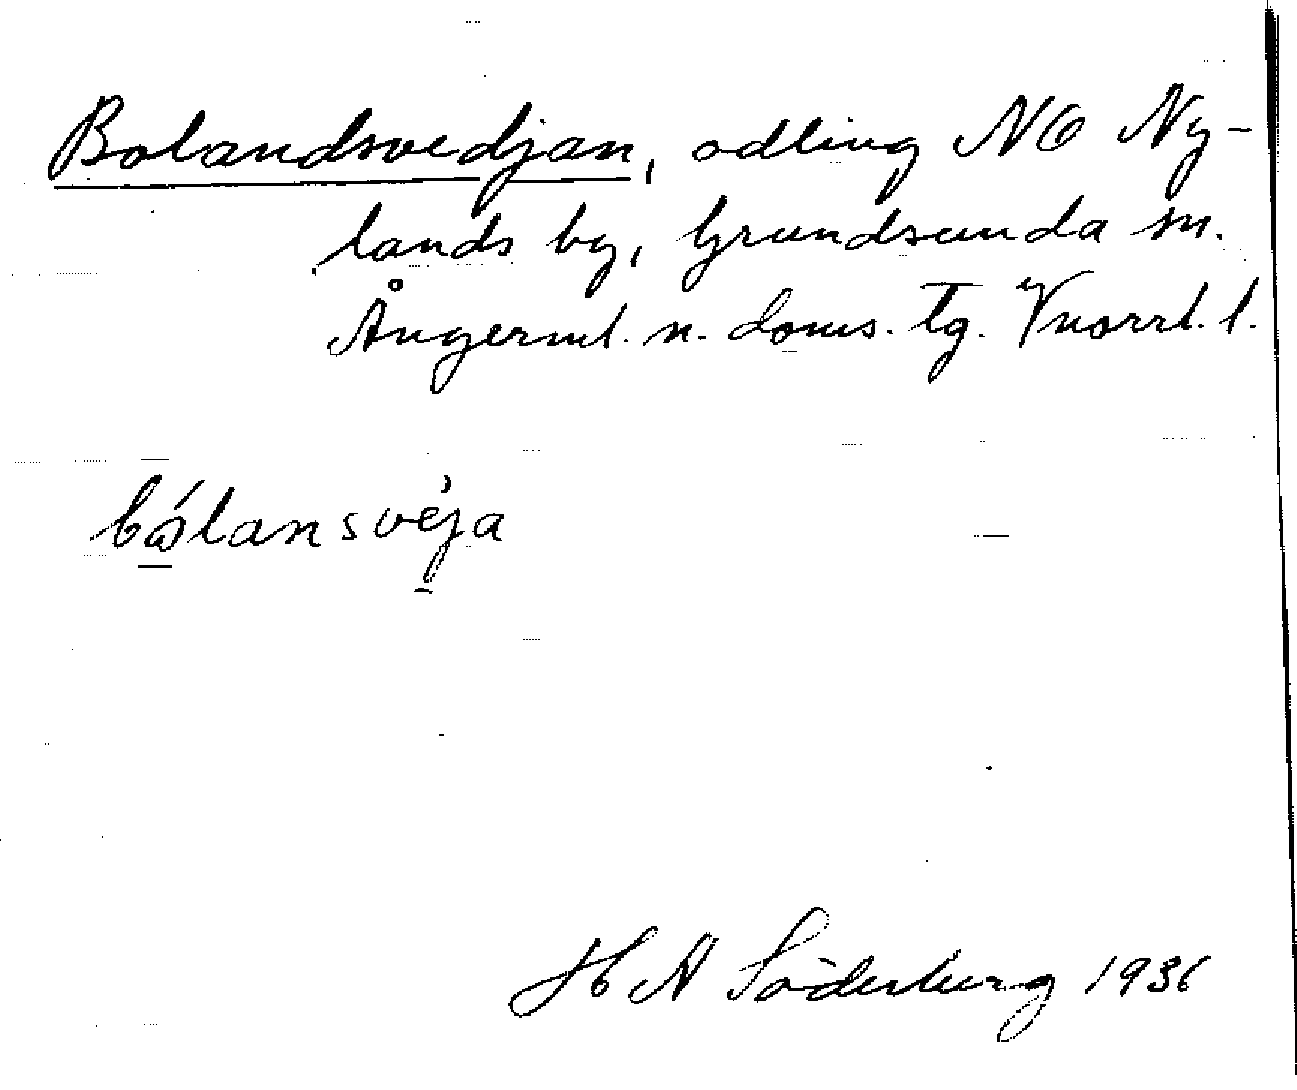 Bolandsvedjan, odling NO Ny-
lands by, Grundsunda sn.
Ångerml. n. doms. tg. Vnorrl. l.
bålansvéja
H A Söderberg 1936